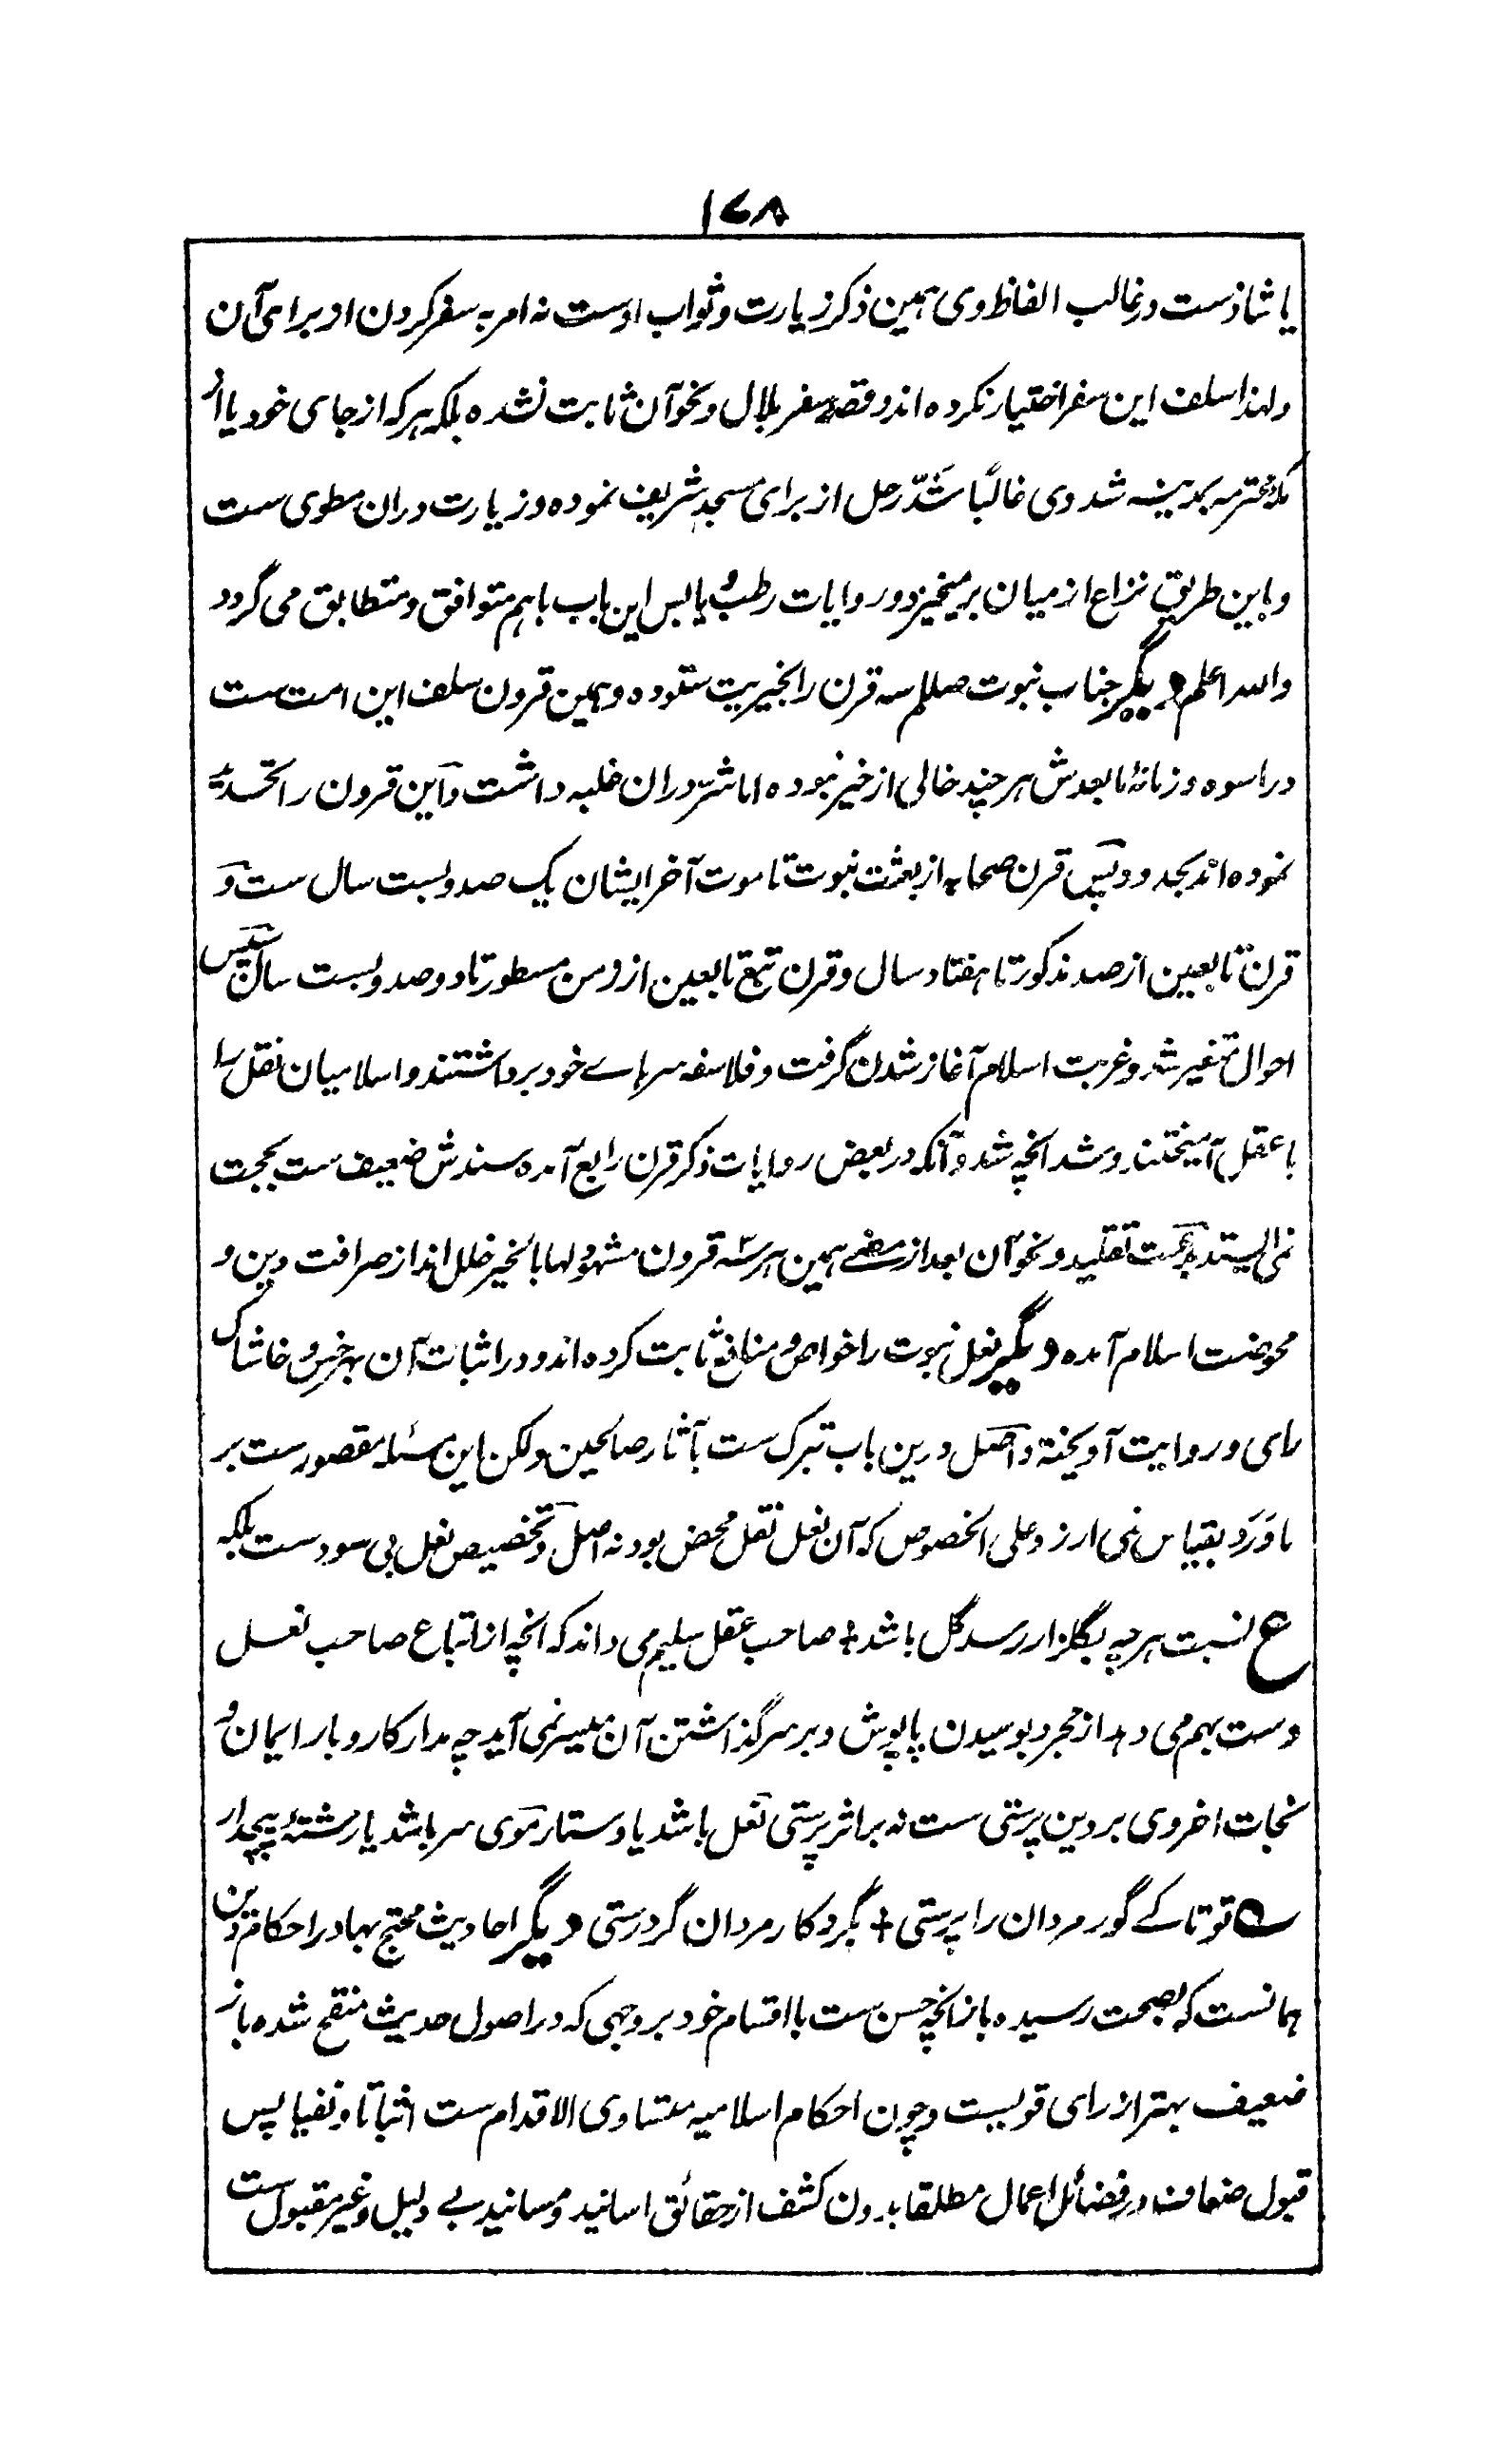 ۱۶۸
یا شاذست و غالب الفاظ وی همین ذکر زیارت و ثواب اوست نه امر به سفر کردن او برای آن
ولهذا سلف این سفر اختیار نکرده اند و قصهٔ سفر بلال و نحو آن ثابت نشده بلکه هر که از جای خود یا از
مکهٔ محترمه بمدینه شد وی غالبًا شدّ رحل از برای مسجد شریف نموده و زیارت دران مطوی ست
و باین طریق نزاع از میان برمیخیزد و روایات رطب و یابس این باب باهم متوافق و متطابق می گردد
والله اعلم دیگر جناب نبوت صللم سه قرن را بخیریت ستوده و همین قرون سلف این امت ست
در اسوه و زمانهٔ ما بعدش هر چند خالی از خیر نبوده اما شرّ دران غلبه داشت و این قرون را تحدید
نموده اند بحدود پس قرن صحابه از بعثت نبوت تا موت آخر ایشان یک صد و بست سال ست و
قرن تابعین از صد مذکور تا هفتاد سال و قرن تبع تابعین از زمن مسطور تا دو صد و بست سال سپس
احوال متغیر شد و غربت اسلام آغاز شدن گرفت و فلاسفه سرهاے خود برداشتند و اسلامیان نقل را
با عقل آمیختند و شد آنچه شد و آنکه در بعض روایات ذکر قرن رابع آمده سندش ضعیف ست بحجت
نمی ایستد بدعت تقلید و نحو آن بعد از مضے همین هر سه قرون مشهود لها بالخیر خلل انداز صرافت دین و
محوضت اسلام آمده دیگر نعل نبوت را خواص و منافع ثابت کرده اند و در اثبات آن بهر خس و خاشاک
رای و روایت آویخته و اصل درین باب تبرک ست بآثار صالحین ولکن این مسئله مقصورست بر
ما وَرَدَ بقیاس نمی ارزد علی الخصوص که آن نعل نقل محض بود نه اصل و تخصیص نعل بی سودست بلکه
ع نسبت هر چه بگلزار رسد گل باشد + صاحب عقل سلیم می داند که آنچه از اتباع صاحب نعل
دست بهم می دهد از مجرد بوسیدن پاپوش و بر سر گذاشتن آن میسر نمی آید چه مدار کار و بار ایمان و
نجات اخروی بر دین پرستی ست نه بر اثر پرستی نعل باشد یا دستار موی سر باشد یا رشتهٔ پیچدار
ے تو تا کے گور مردان را پرستی + بگرد کار مردان گرد رستی دیگر احادیث محتج بها در احکام دین
همانست که بصحت رسیده باز آنچه حسن ست با اقسام خود بر وجهی که در اصول حدیث منقح شده باز
ضعیف بهتر از رای قویست و چون احکام اسلامیه متساوی الاقدام ست اثباتًا و نفیا پس
قبول ضعاف در فضائل اعمال مطلقا بدون کشف از حقائق اسانید و مسانید بے دلیل و غیر مقبول ست